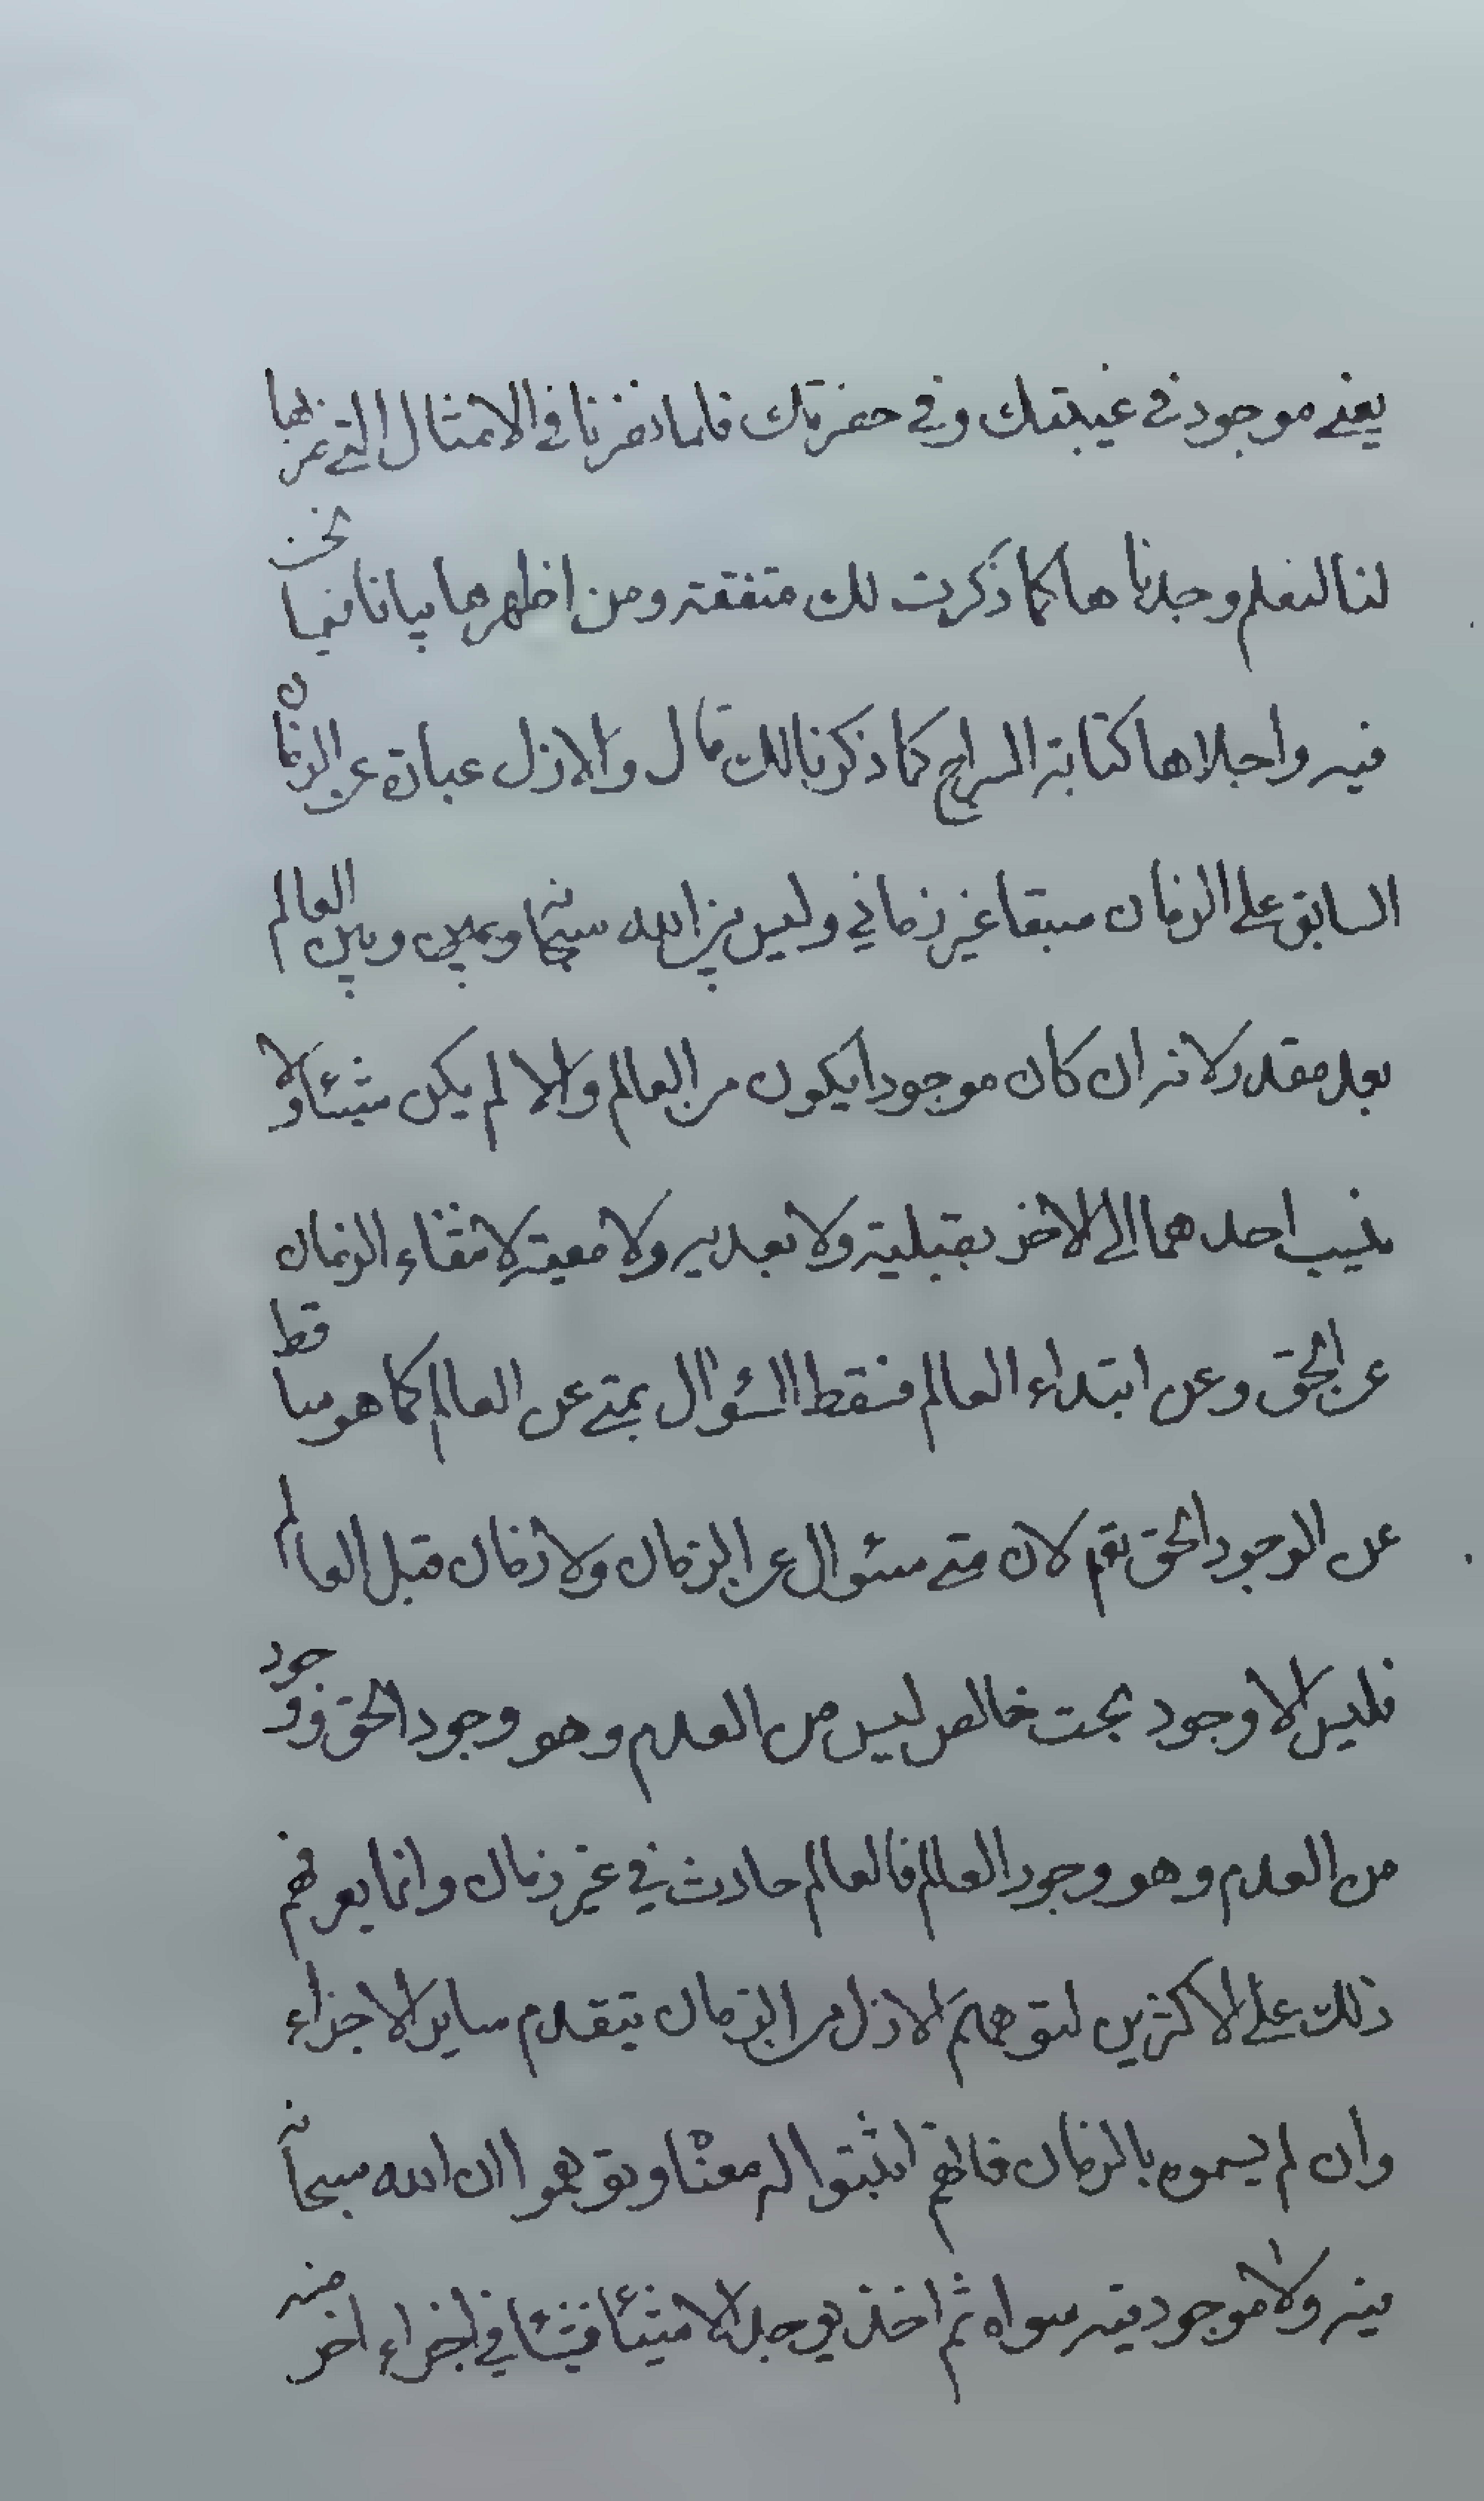 يعني موجود في غيبتك وفي حضرتك فلما نظرنا في الامثال التي ضربها
لنا لنعلم وجدناها كما ذكرت لك متفقة ومن اظهرها بيانا فيما نحن
فيه واجلاها كتابة السراج كما ذكرنا لك قال والازل عبارة عن الزمان
السابق على الزمان سبقا غير زماني وليس بين الله سبحانه وبين العالم
بعد مقدر لانه ان كان موجودا يكون من العالم والا لم يكن شيئا ولا
ينسب احدهما الى الاخر بقبلية ولا بعدية ولا معية لانتفاء الزمان
عن الحق وعن ابتداء العالم فسقط السؤال بمتى عن العالم كما هو ساقط
عن الوجود الحق تعم لان متى سئوال عن الزمان ولا زمان قبل العالم
فليس الا وجود بحت خالص ليس من العدم وهو وجود الحق ووجود
من العدم وهو وجود العالم فالعالم حادث في غير زمان وانما يعر فهم
ذلك على الاكثرين لتوهم الازل من الزمان يتقدم ساير الاجزاء
وان لم يسموه بالزمان فانهم اثبتوا له معناه وتوهموا ان الله سبحانه
فيه ولا موجود فيه سواه ثم اخذ يوجد الاشياء شيئا فشيئا في اجزاء اخر منه